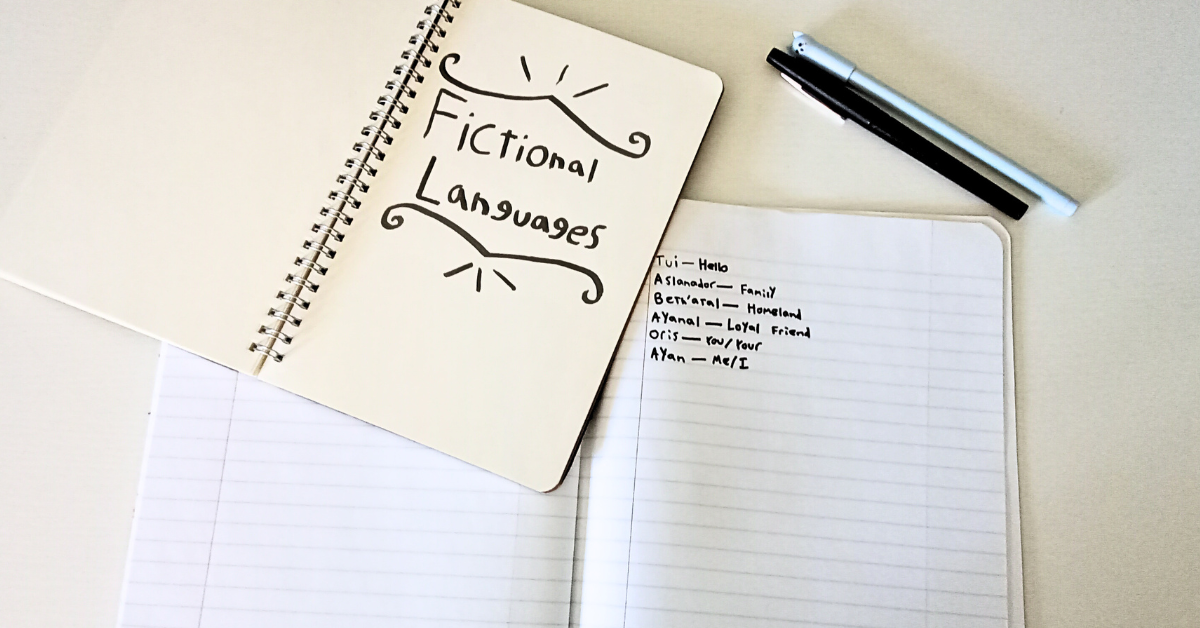 Fictional
Languages
Tui — Hello
Aslanador — Family
Beth'aral — Homeland
Ayanal — Loyal Friend
Oris — You/Your
Ayan — Me/I